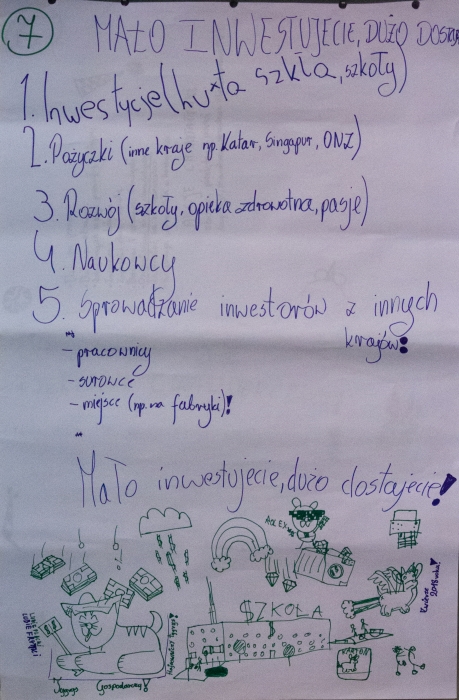 7
MAŁO INWESTUJECIE, DUŻO DOSTAJ
1. Inwestycje (huta szkła, szkoły)
2. Pożyczki (inne kraje np. Katar, Singapur, ONZ)
3. Rozwój (szkoły, opieka zdrowotna, pasje)
4. Naukowcy
5. Sprowadzanie inwestorów z innych
krajów!
- pracownicy
- surowce
- miejsce (np. na fabryki)!
Mało inwestujecie, dużo dostajecie!
$ZKOŁA
KARTON
Tygrys Gospodarczy!